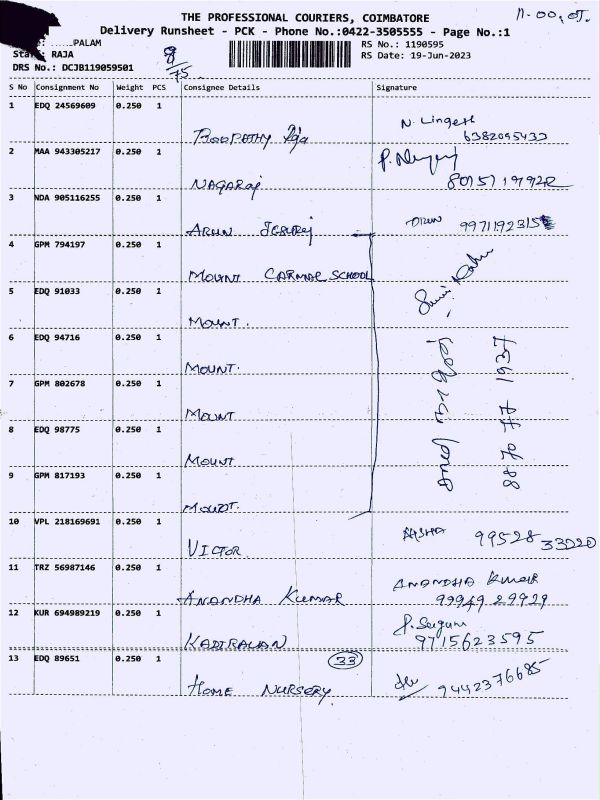 THE PROFESSIONAL COURIERS, COIMBATORE
Delivery Runsheet - PCK - Phone No.:0422-3505555 - Page No.:1
.....PALAM
RS No.: 1190595
Staff: RAJA
8/75
RS Date: 19-Jun-2023
DRS No.: DCJB119059501
S No Consignment No Weight PCS Consignee Details Signature
1 EDQ 24569609 0.250 1
BOOPATHY Raja N. Lingesh
6382095433
2 MAA 943305217 0.250 1
NAGARAj
3 NDA 905116255 0.250 1
ARUN JESURAj ARUN
4 GPM 794197 0.250 1
MOUNT CARMAL SCHOOL
5 EDQ 91033 0.250 1
MOUNT.
6 EDQ 94716 0.250 1
MOUNT.
7 GPM 802678 0.250 1
MOUNT
8 EDQ 98775 0.250 1
MOUNT
9 GPM 817193 0.250 1
MOUNT.
88 70 77 1937
10 VPL 218169691 0.250 1
VICTOR AISHA 99528 33020
11 TRZ 56987146 0.250 1
ANANDHA KUMAR ANANDHA Kumar
99949 29929
12 KUR 694989219 0.250 1
KADIRAVAN
9715623595
13 EDQ 89651 0.250 1 33
HOME NURSERY 9442376685